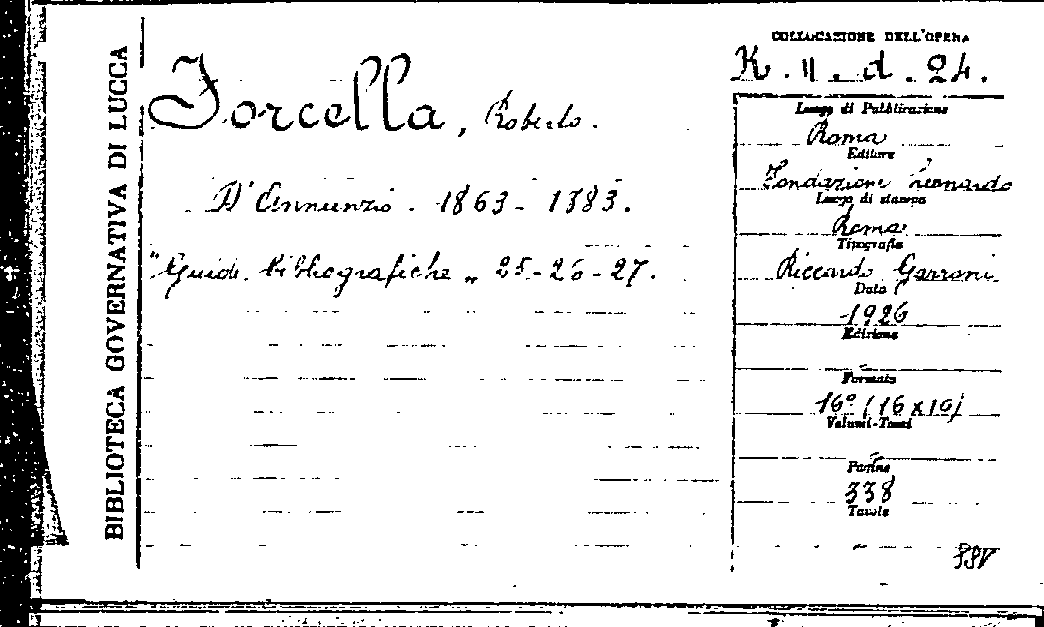 BIBLIOTECA GOVERNATIVA DI LUCCA
Forcella, Roberto.
D'Annunzio. 1863-1883.
"Guide Bibliografiche„ 25-26-27.
COLLOCAZIONE DELL'OPERA
K. II. d. 24.
Luogo di Pubblicazione
Roma
Editore
Fondazione Leonardo
Luogo di stampa
Roma
Tipografia
Riccardo Garroni
Data
1926
Edizione
Formato
16° (16x10)
Volumi-Tomi
Pagine
338
Tavole